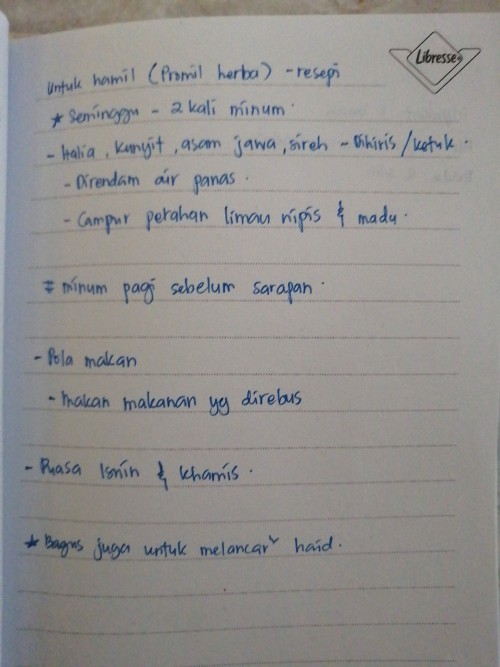 Libresse
Untuk hamil (Promil herba) - resepi
* Seminggu - 2 kali minum.
- Halia, kunyit, asam jawa, sireh - Dihiris / ketuk.
- Direndam air panas.
- Campur perahan limau nipis & madu.
# minum pagi sebelum sarapan.
- Pola makan
- makan makanan yg direbus
- Puasa Isnin & khamis.
* Bagus juga untuk melancar² haid.